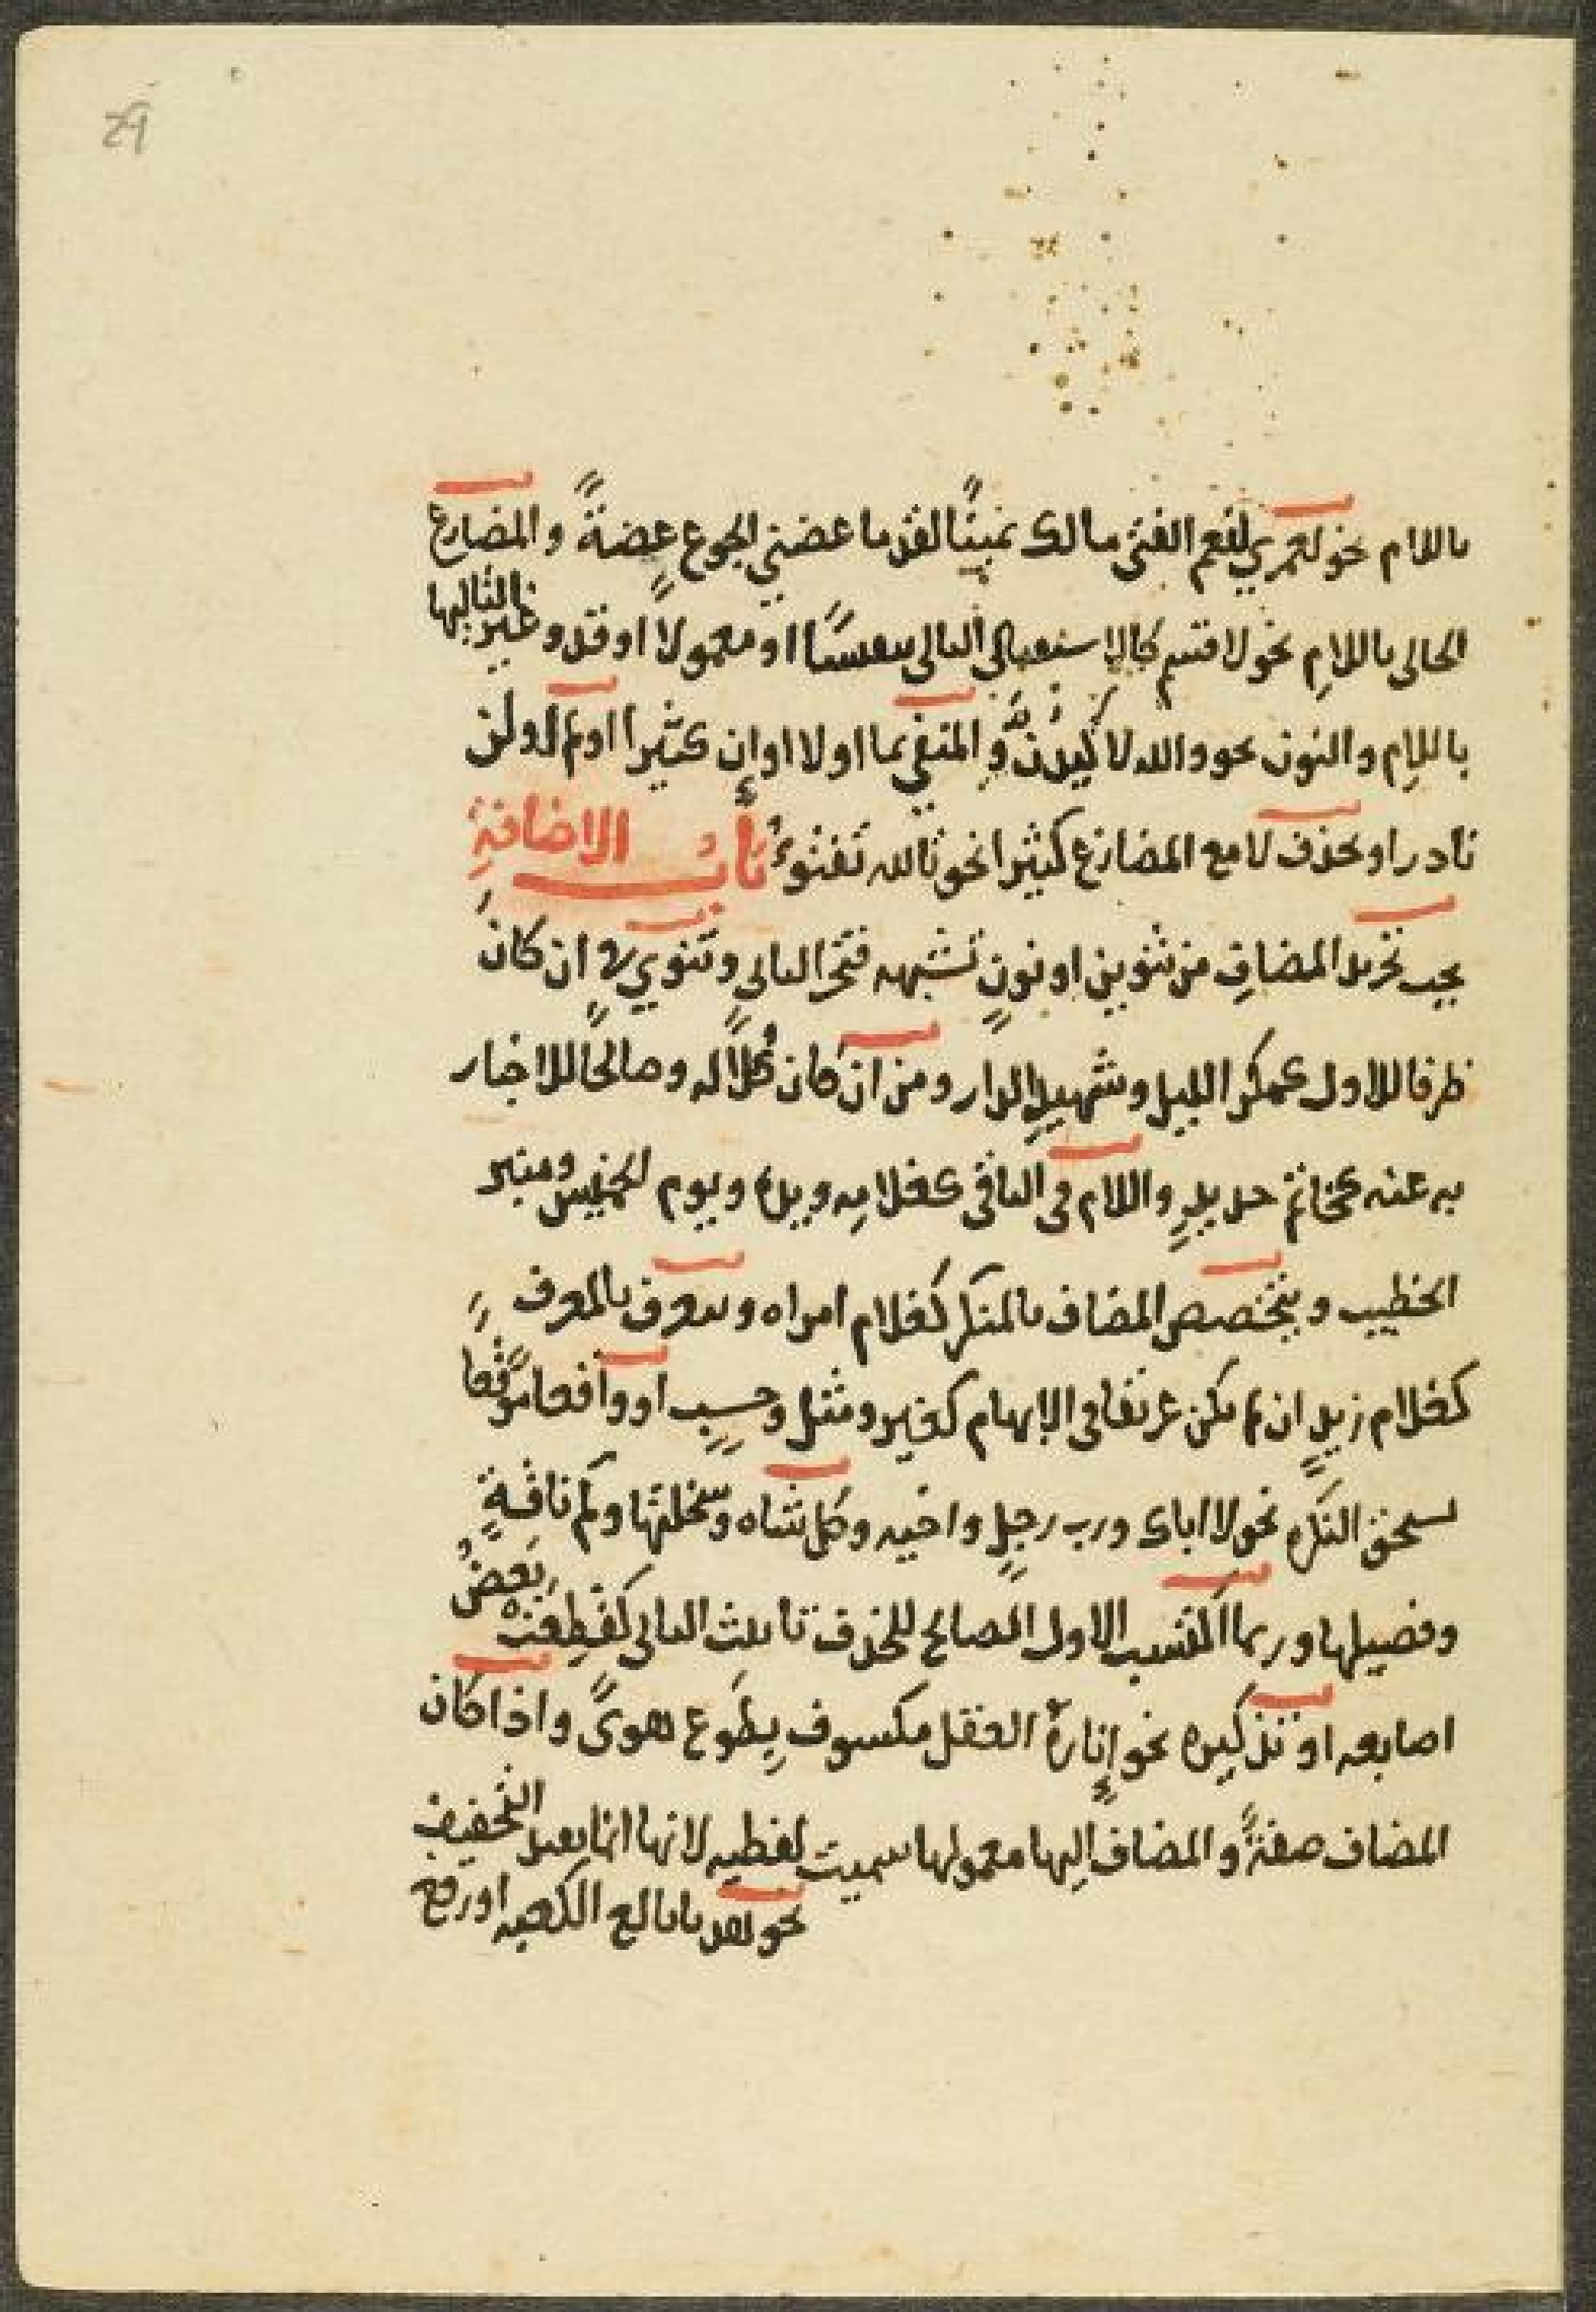 29
باللام نحو لعمري لنعم الفتى مالك يمينًا لقد ما عضني الجوع عضةً والمضارع
الحالي باللامِ نحو لاقسم كالاستقبالي التالي تنفيسًا او معمولا او قد وغير التاليها
باللامِ والنون نحو والله لاكيدنَّ والمنفي بما او لا او ان كثيرا او لم او لن
نادرا وبحذف لا مع المضارع كثيرا نحو تالله تفتؤُ بابُ الاضافةِ
يجب تجريد المضافِ من تنوين او نونٍ تشبهه فتجر التالي وتنوي في ان كانَ
ظرفا للاول كمكر الليل وشهيدِ الدار ومن ان كان كُلاًّ له وصالحًا للاخبار
به عنه كخاتم حديدٍ واللام في الباقي كغلامِه ويده ويوم الخميس ومنبر
الخطيب ويتخصص المضاف بالمنكر كغلام امراه ويتعرف بالمعرف
كغلام زيدٍ ان لم يكن عريقا في الابهام كغير ومثل وحسبِ او واقعا موقعًا
يستحق النكره نحو لا اباك ورب رجلٍ واخيه وكل شاه وسخلتها وكم ناقةٍ
وفصيلها وربما اكتسب الاول الصالح للحذف تانيث التالي كقطِعت بعضُ
اصابعه او تذكيره نحو إنارةُ العقل مكسوف بِطَوع هوىً واذا كان
المضاف صفةً والمضاف اليها معمولها سميت لفظيه لانها انما تفيد التخفيف
نحو هديا بالغ الكعبه او رفع